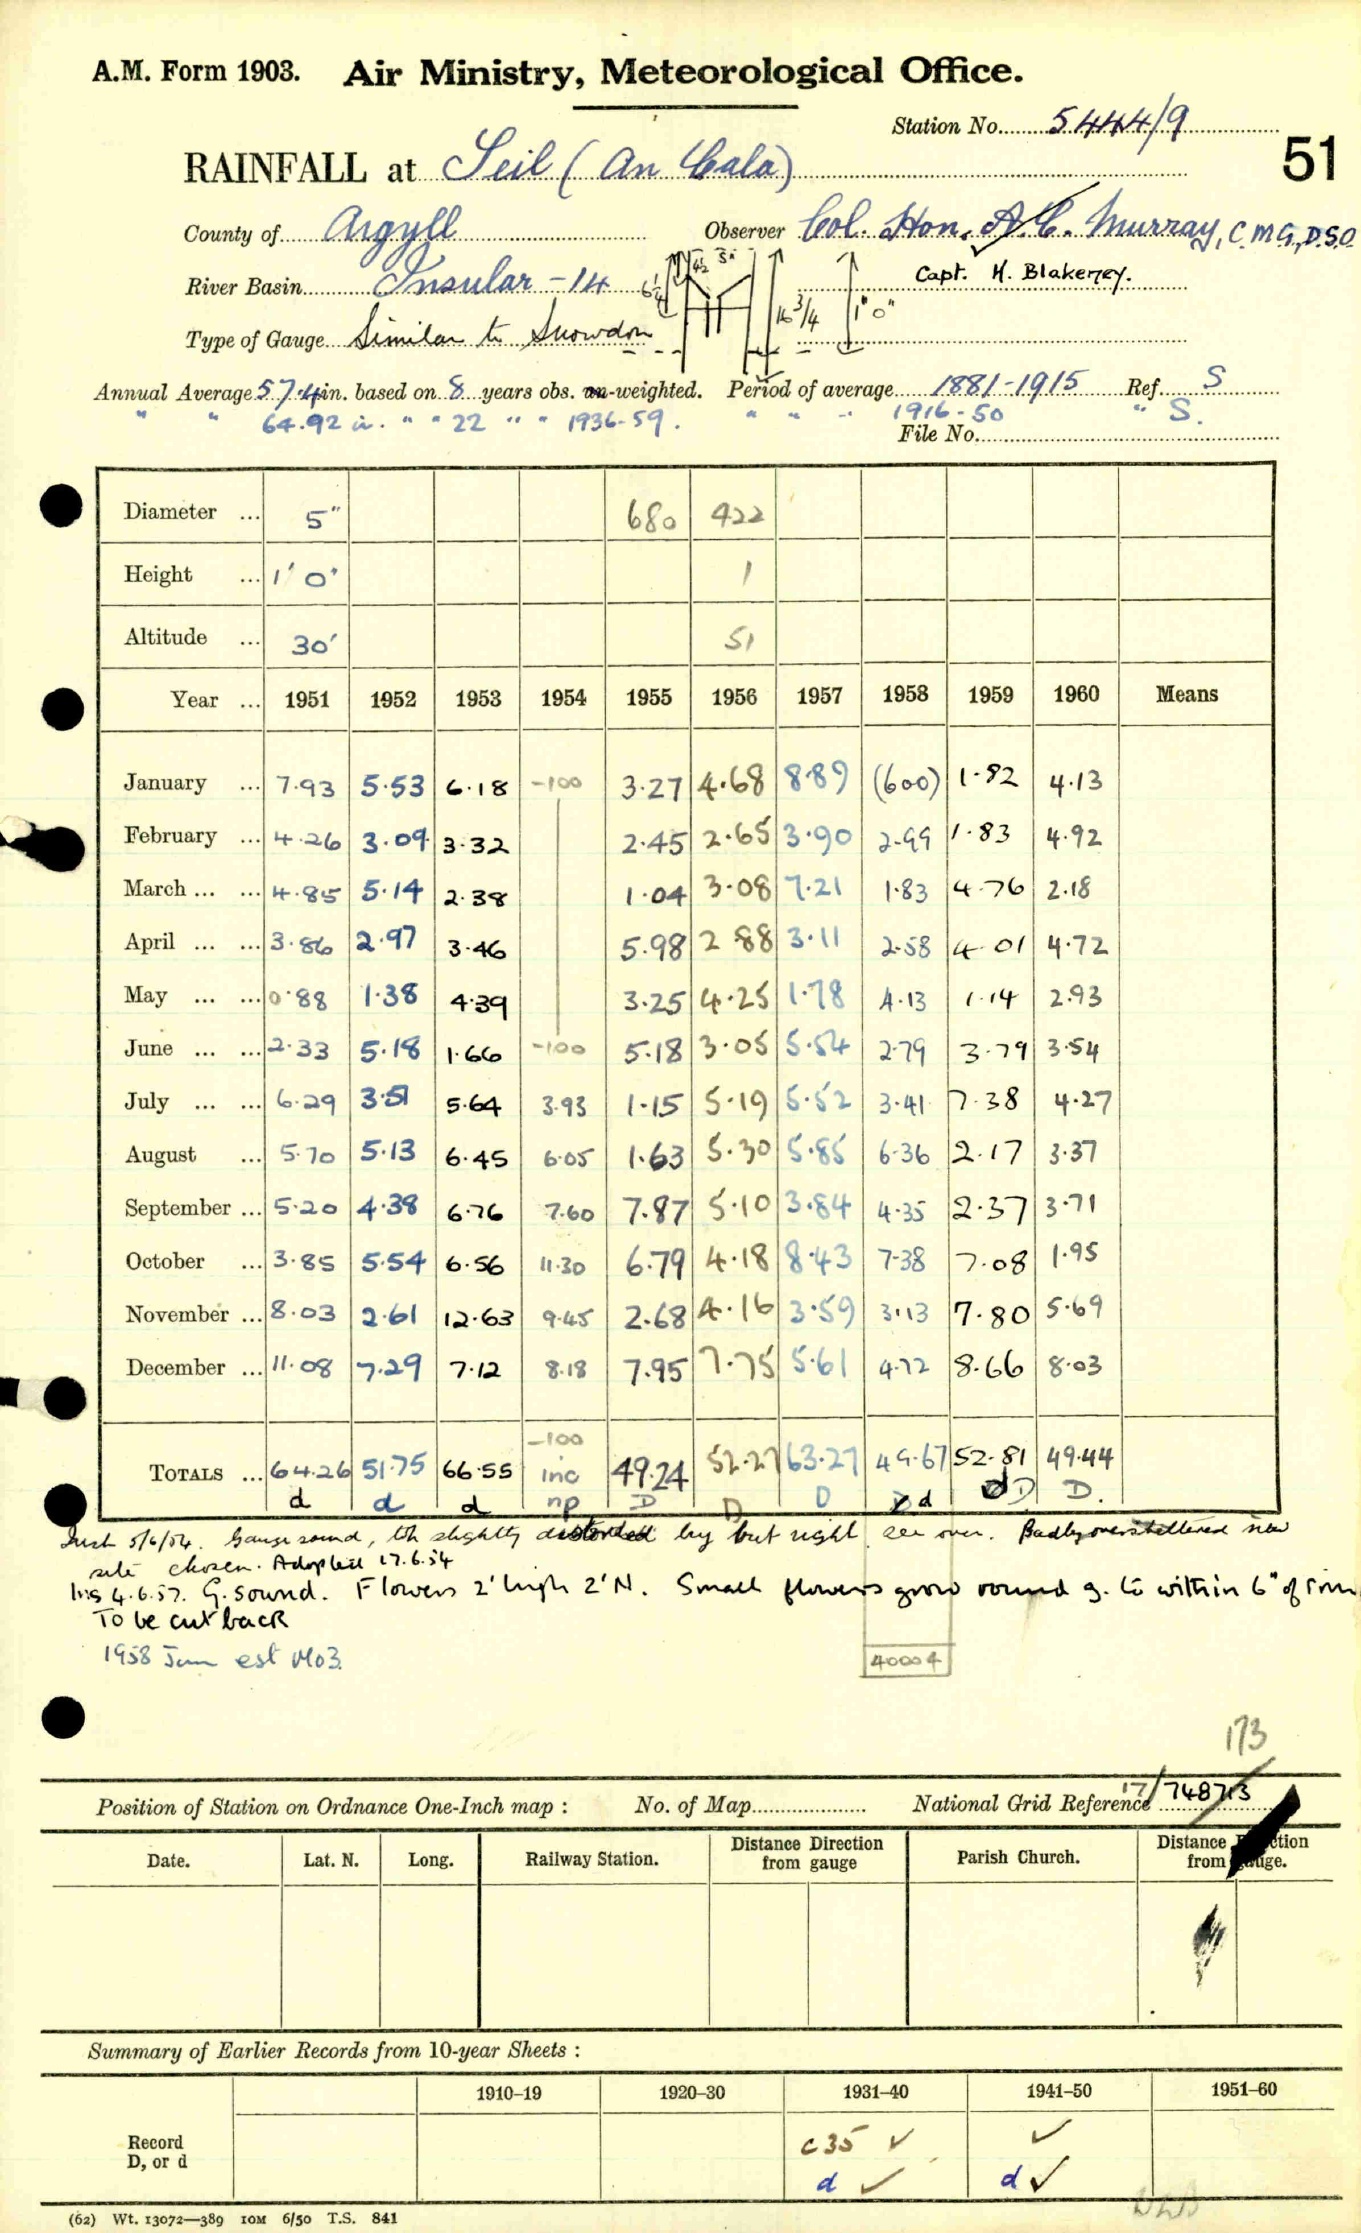 A.M. Form 1903. Air Ministry, Meteorological Office.
Station No. 5444/9
51
RAINFALL at Seil (An Cala)
County of Argyll Observer Col. Hon. A.C. Murray, C.M.G., D.S.O.
River Basin Insular - 14 Capt. H. Blakeney.
6¼ 4½ 5" 16 3/4 1' 0"
Type of Gauge Similar to Snowdon
Annual Average 57.4 in. based on 8 years obs. un-weighted. Period of average 1881-1915 Ref. S
" " 64.92 in. " " 22 " " 1936-59. " " " 1916-50 " S.
File No.
Diameter ... 5" 680 422
Height ... 1' 0" 1
Altitude ... 30' 51
Year ... 1951 1952 1953 1954 1955 1956 1957 1958 1959 1960 Means
January ... 7.93 5.53 6.18 -100 3.27 4.68 8.89 (600) 1.82 4.13
February ... 4.26 3.09 3.32 2.45 2.65 3.90 2.99 1.83 4.92
March ... ... 4.85 5.14 2.38 1.04 3.08 7.21 1.83 4.76 2.18
April ... ... 3.86 2.97 3.46 5.98 2.88 3.11 2.58 4.01 4.72
May ... ... 0.88 1.38 4.39 3.25 4.25 1.78 4.13 1.14 2.93
June ... ... 2.33 5.18 1.66 -100 5.18 3.05 5.54 2.79 3.79 3.54
July ... ... 6.29 3.51 5.64 3.93 1.15 5.19 5.52 3.41 7.38 4.27
August ... 5.70 5.13 6.45 6.05 1.63 5.30 5.85 6.36 2.17 3.37
September ... 5.20 4.38 6.76 7.60 7.87 5.10 3.84 4.35 2.37 3.71
October ... 3.85 5.54 6.56 11.30 6.79 4.18 8.43 7.38 7.08 1.95
November ... 8.03 2.61 12.63 9.45 2.68 4.16 3.59 3.13 7.80 5.69
December ... 11.08 7.29 7.12 8.18 7.95 7.75 5.61 4.72 8.66 8.03
-100
TOTALS ... 64.26 51.75 66.55 inc 49.24 52.27 63.27 49.67 52.81 49.44
d d d np D D D d D D.
Inst 5/6/54. Gauge sound, tho slightly distorted by but right see over. Badly oversheltered new
site chosen. Adopted 17.6.54
Ins 4.6.57. G. sound. Flowers 2' high 2' N. Small flowers grow round g. to within 6" of rim
To be cut back
1958 Jan est M03.
40004
173
Position of Station on Ordnance One-Inch map : No. of Map National Grid Reference 17/748713
Date. Lat. N. Long. Railway Station. Distance Direction from gauge Parish Church. Distance Direction from gauge.
Summary of Earlier Records from 10-year Sheets :
1910–19 1920–30 1931–40 1941–50 1951–60
Record c35 ✓ ✓
D, or d d ✓ d ✓
(62) Wt. 13072—389 IOM 6/50 T.S. 841